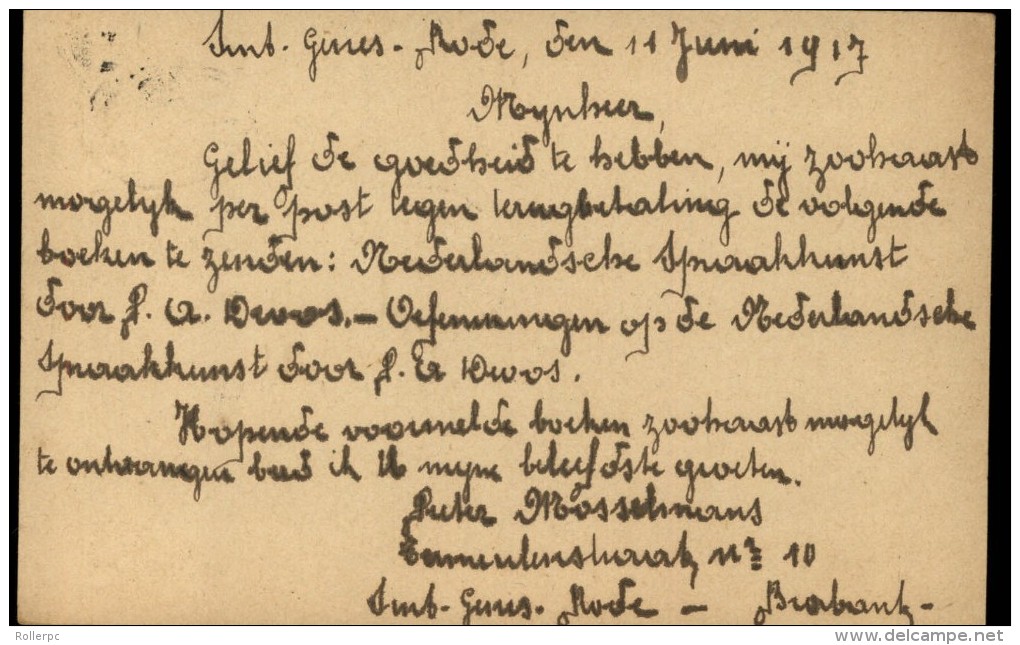 Sint-Genes-Rode, den 11 Juni 1917
Mynheer,
Gelief de goedheid te hebben, mij zoohaast
mogelyk per post tegen terugbetaling de volgende
boeken te zenden: Nederlandsche Spraakkunst
door P. A. Devos. — Oefenningen op de Nederlandsche
Spraakkunst door P. A Devos.
Hopende voormelde boeken zoohaast mogelyk
te ontvangen bied ik U myne beleefdste groeten.
Pieter Mosselmans
nr 10
Sint-Genes-Rode — Brabant-
Rollerpc
http://www.delcampe.net